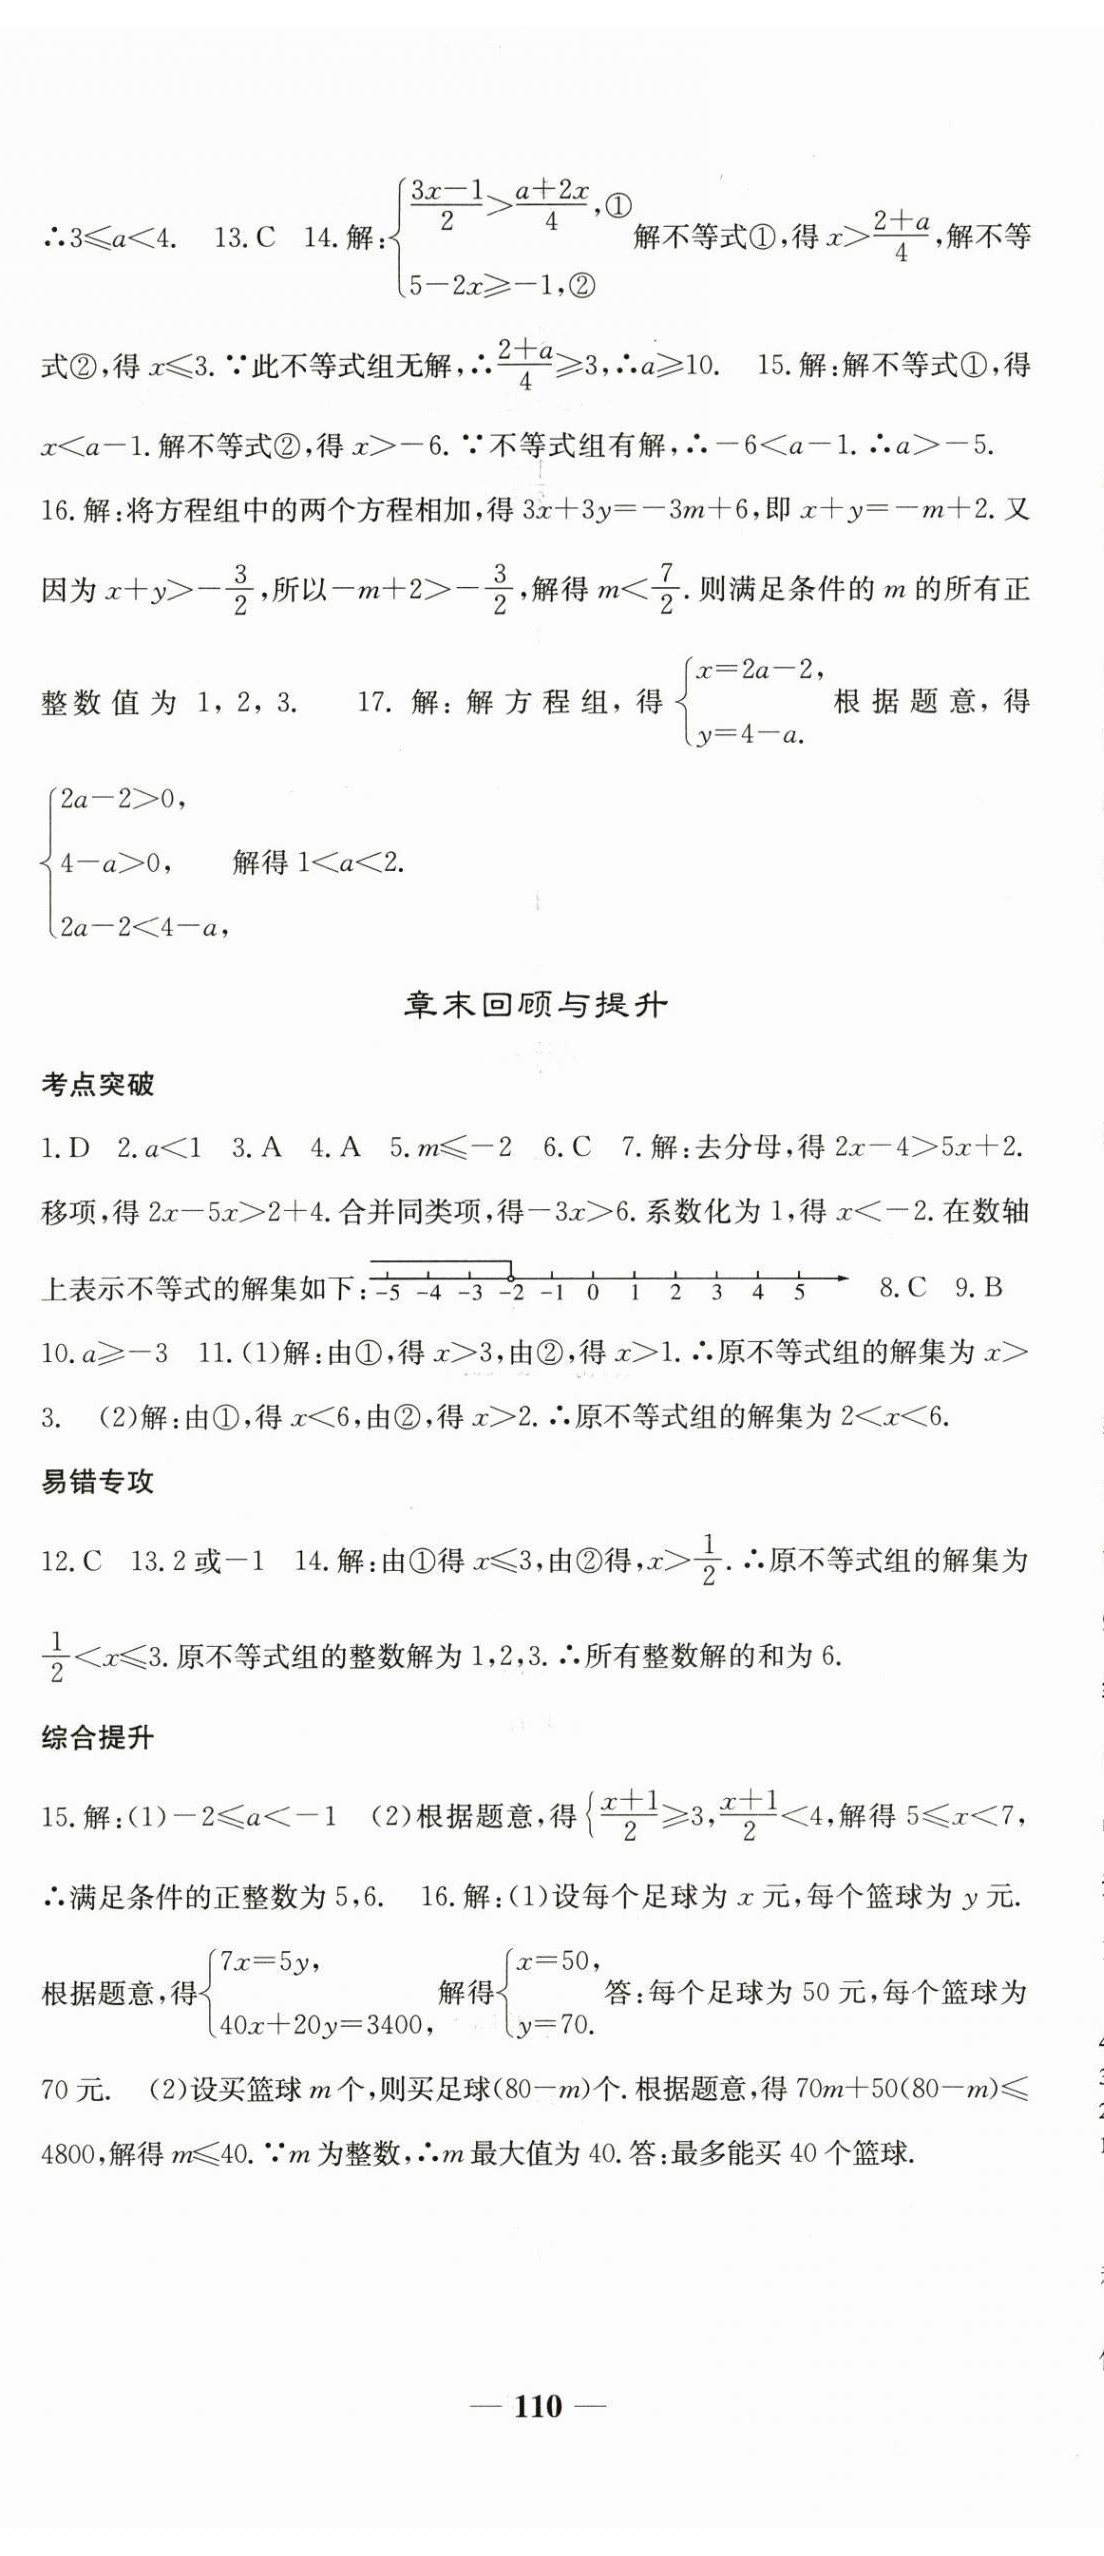 ∴3≤a<4. 13. C 14. 解:{(3x-1)/2>(a+2x)/4,① 5-2x≥-1,② 解不等式①,得 x>(2+a)/4,解不等
式②,得 x≤3. ∵此不等式组无解,∴(2+a)/4≥3,∴a≥10. 15. 解:解不等式①,得
x<a-1. 解不等式②,得 x>-6. ∵不等式组有解,∴-6<a-1. ∴a>-5.
16. 解:将方程组中的两个方程相加,得 3x+3y=-3m+6,即 x+y=-m+2. 又
因为 x+y>-3/2,所以-m+2>-3/2,解得 m<7/2. 则满足条件的 m 的所有正
整数值为 1,2,3. 17. 解:解方程组,得 {x=2a-2, y=4-a. 根据题意,得
{2a-2>0,
4-a>0, 解得 1<a<2.
2a-2<4-a,
章末回顾与提升
考点突破
1. D 2. a<1 3. A 4. A 5. m≤-2 6. C 7. 解:去分母,得 2x-4>5x+2.
移项,得 2x-5x>2+4. 合并同类项,得-3x>6. 系数化为 1,得 x<-2. 在数轴
上表示不等式的解集如下: -5 -4 -3 -2 -1 0 1 2 3 4 5 8. C 9. B
10. a≥-3 11. (1)解:由①,得 x>3,由②,得 x>1. ∴原不等式组的解集为 x>
3. (2)解:由①,得 x<6,由②,得 x>2. ∴原不等式组的解集为 2<x<6.
易错专攻
12. C 13. 2 或-1 14. 解:由①得 x≤3,由②得,x>1/2. ∴原不等式组的解集为
1/2<x≤3. 原不等式组的整数解为 1,2,3. ∴所有整数解的和为 6.
综合提升
15. 解:(1)-2≤a<-1 (2)根据题意,得{(x+1)/2≥3,(x+1)/2<4,解得 5≤x<7,
∴满足条件的正整数为 5,6. 16. 解:(1)设每个足球为 x 元,每个篮球为 y 元.
根据题意,得{7x=5y, 40x+20y=3400, 解得{x=50, y=70. 答:每个足球为 50 元,每个篮球为
70 元. (2)设买篮球 m 个,则买足球(80-m)个. 根据题意,得 70m+50(80-m)≤
4800,解得 m≤40. ∵m 为整数,∴m 最大值为 40. 答:最多能买 40 个篮球.
— 110 —